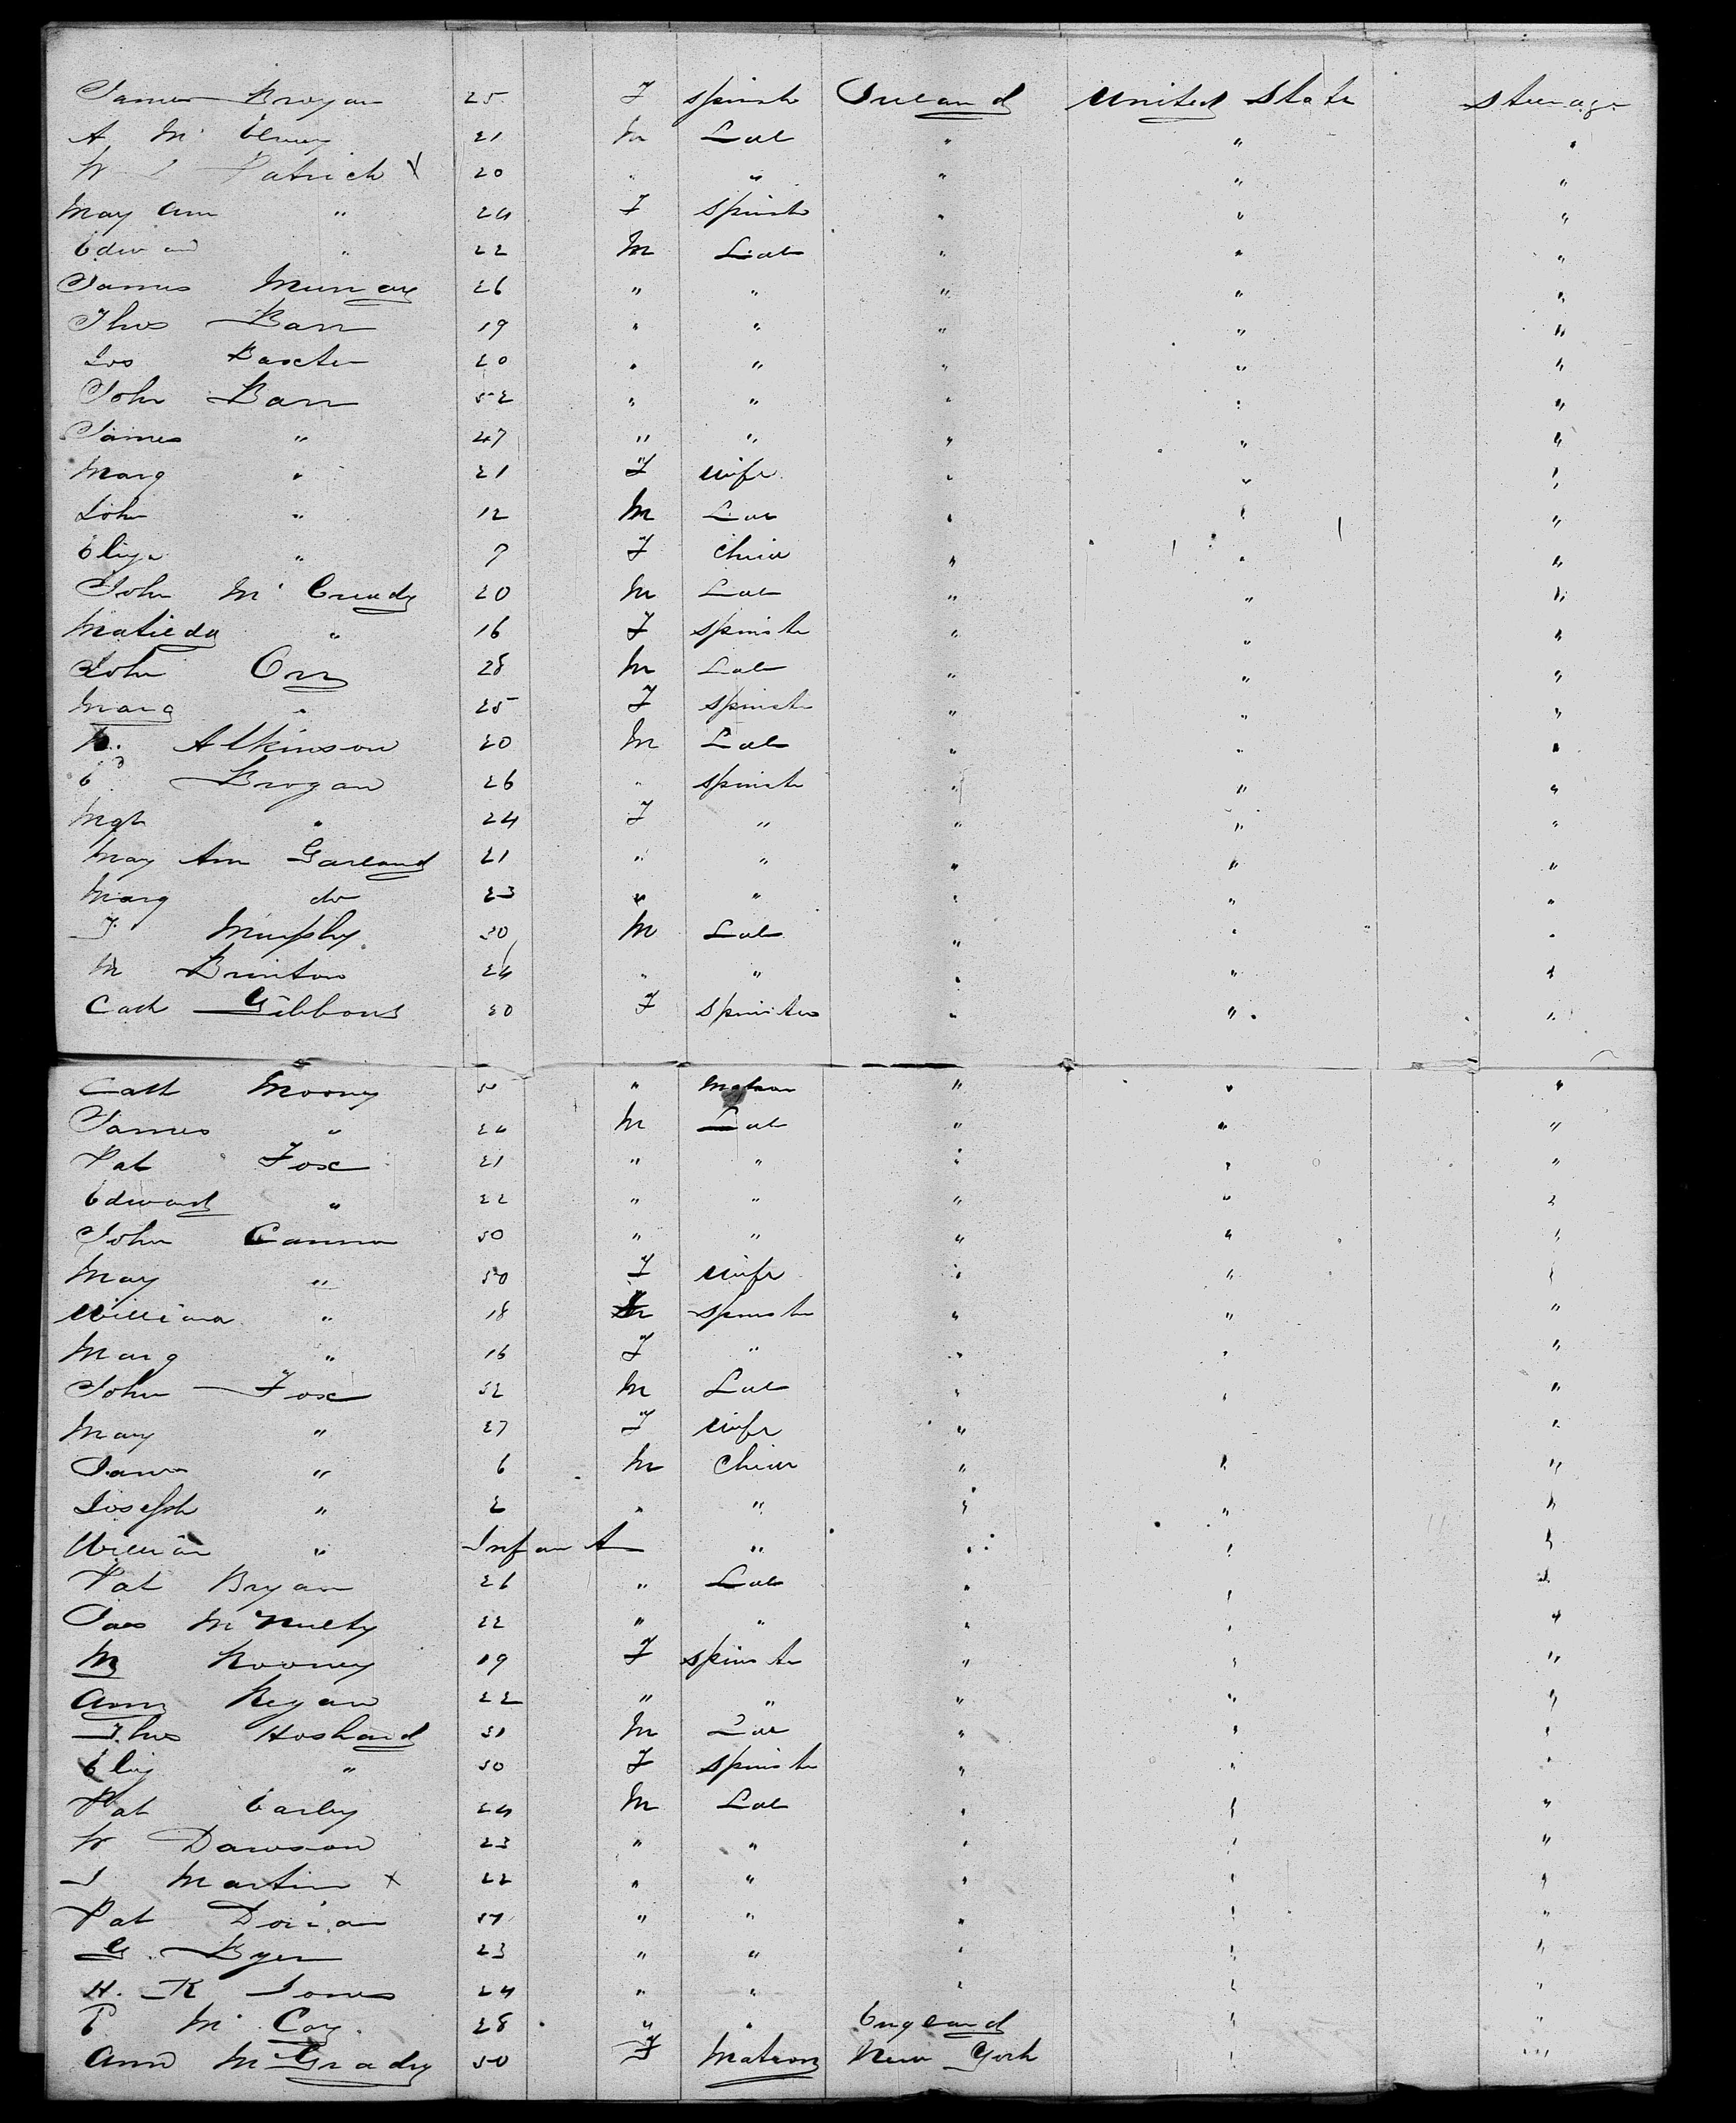 James Brogan 25 F spinste Ireland United State Steerage
A Mc 21 M Lab " " "
W Patrick X 20 " " " " "
May Ann " 24 F spinste " " "
Edward " 22 M Lab " " "
James 26 " " " " "
Thos Barr 19 " " " " "
Jos Baxter 20 " " " " "
John Barr 52 " " " " "
James " 47 " " " " "
Marg " 21 F wife " " "
John " 12 M Lab " " "
Eliza " 7 F Child " " "
John Mc Cready 20 M Lab " " "
Matilda " 16 F spinste " " "
John Orr 28 M Lab " " "
Marg " 25 F spinste " " "
Atkinson 20 M Lab " " "
Brogan 26 " spinste " " "
Mgt " 24 F " " " "
May Ann Garland 21 " " " " "
Marg do 23 " " " " "
T. Murphy 30 M Lab " " "
M Brinton 24 " " " " "
Cath Gibbons 20 F spinster " " "
Cath Mooney 50 " Matron " " "
James " M Lab " " "
Pat Fox 21 " " " " "
Edward " 22 " " " " "
John Cannon 50 " " " " "
May " 50 F wife " " "
William " 18 M spinste " " "
Marg " 16 F " " " "
John Fox 32 M Lab " " "
May " 27 F wife " " "
James " 6 M Child " " "
Joseph " 2 " " " " "
William " Infant " " " "
Pat Bryan 26 " Lab " " "
Jas McNulty 22 " " " " "
M Rooney 19 F spinste " " "
Ann Regan 22 " " " " "
Thos Hoshard 31 M Lab " " "
Eliz " 30 F spinste " " "
Pat Earley 24 M Lab " " "
W Dawson 23 " " " " "
J Martin X 22 " " " " "
Pat Dolan " " " " "
G. Byer 23 " " " " "
H. K Jones 24 " " " " "
P Mc Coy 28 " " England " "
Ann McGrady 50 F Matron New York " "